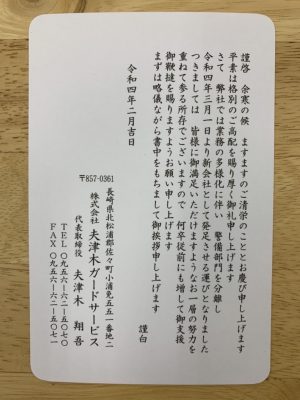 謹啓　余寒の候　ますますのご清栄のこととお慶び申し上げます
平素は格別のご高配を賜り厚く御礼申し上げます
さて　弊社では業務の多様化に伴い　警備部門を分離し
令和四年三月一日より新会社として発足させる運びとなりました
つきましては　皆様に御満足いただけますようなお一層の努力を
重ねて参る所存でございますので　何卒従前にも増して御支援
御鞭撻を賜りますようお願い申し上げます
まずは略儀ながら書中をもちまして御挨拶申し上げます
謹白
令和四年二月吉日
〒857-0361
長崎県北松浦郡佐々町小浦免五五一番地二
株式会社　夫津木ガードサービス
代表取締役　夫津木　翔吾
TEL　〇九五六−六二−五〇七〇
FAX　〇九五六−六二−五〇七一